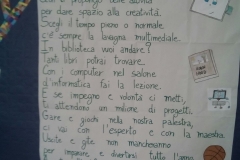 per dare spazio alla creatività.
Scegli il tempo pieno o normale
c'è sempre la lavagna multimediale.
In biblioteca vuoi andare?
Tanti libri potrai trovare.
Con i computer nel salone
d'informatica fai la lezione.
E se impegno e volontà ci metti,
ti attendono un milione di progetti.
Gare e giochi nella nostra palestra,
ci vai con l'esperto e con la maestra.
Uscite e gite non mancheranno
per imparare e divertirsi tutto l'anno